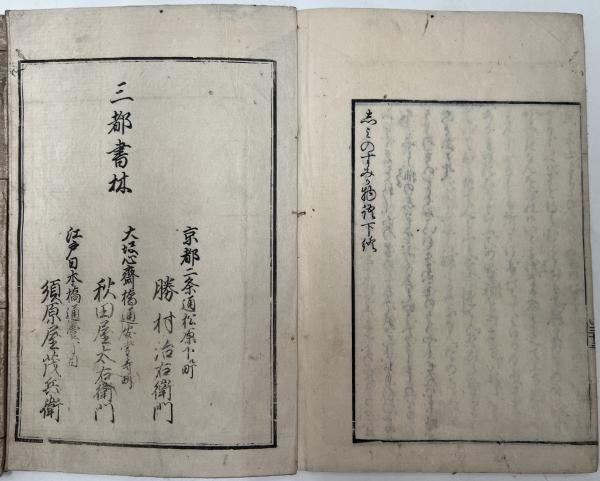 志みのすみか物語下終
三都書林
京都二条通松原下ル町
勝村治右衛門
大坂心齋橋通安堂寺町
秋田屋太右衛門
江戸日本橋通壹丁目
須原屋茂兵衛